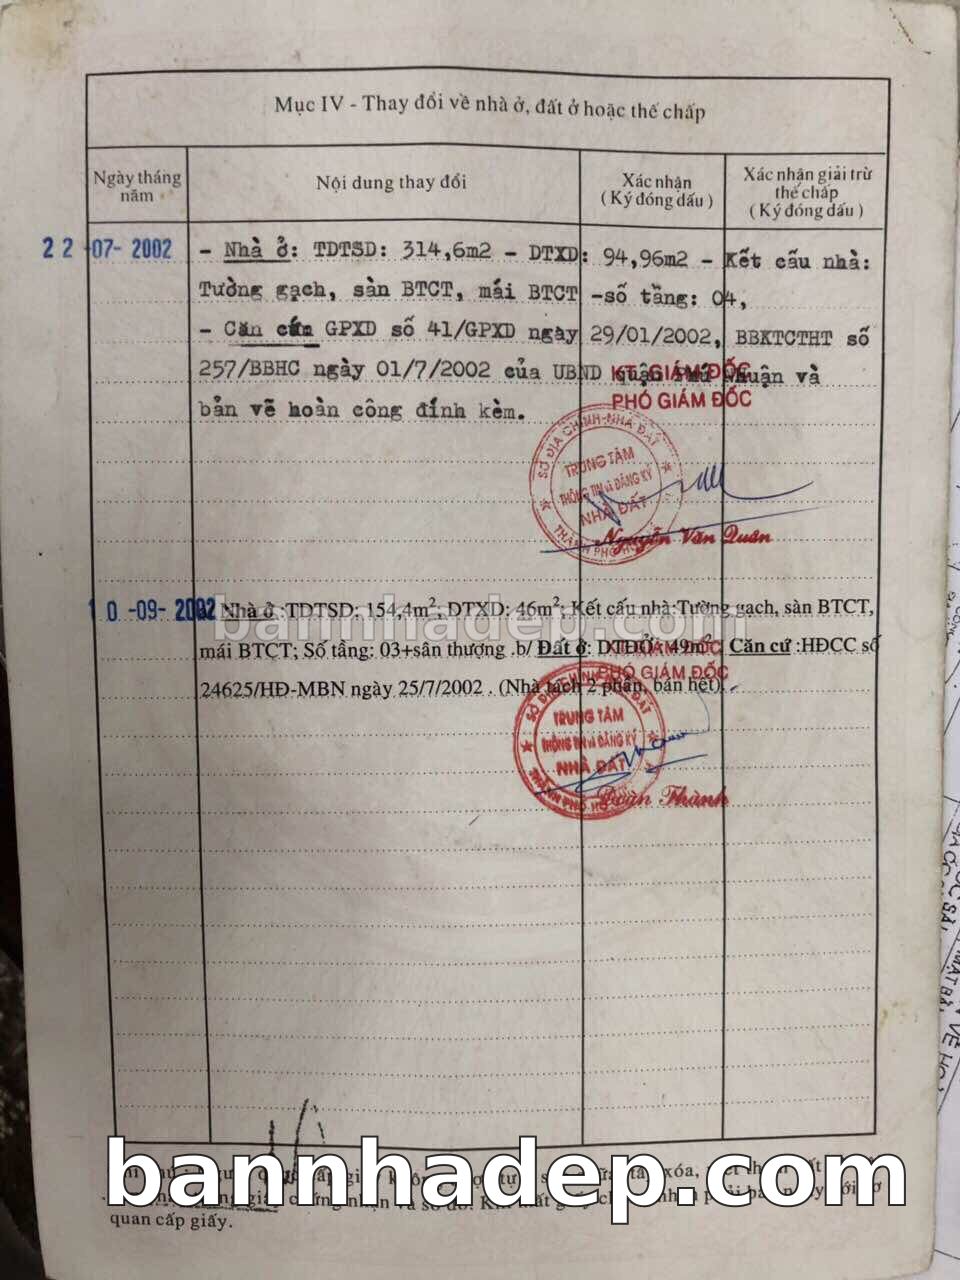 Mục IV - Thay đổi về nhà ở, đất ở hoặc thế chấp
Ngày tháng năm
Nội dung thay đổi
Xác nhận
( Ký đóng dấu )
Xác nhận giải trừ
thế chấp
( Ký đóng dấu )
22-07-2002
- Nhà ở: TDTSD: 314,6m2 - DTXD: 94,96m2 - Kết cấu nhà:
Tường gạch, sàn BTCT, mái BTCT -số tầng: 04,
- Căn cứ GPXD số 41/GPXD ngày 29/01/2002, BBKTCTHT số
257/BBHC ngày 01/7/2002 của UBND quận Phú Nhuận và
bản vẽ hoàn công đính kèm.
KT. GIÁM ĐỐC
PHÓ GIÁM ĐỐC
SỞ ĐỊA CHÍNH-NHÀ ĐẤT
TRUNG TÂM
THÔNG TIN và ĐĂNG KÝ
NHÀ ĐẤT
THÀNH PHỐ
Nguyễn Văn Quân
10-09-2002
Nhà ở :TDTSD: 154,4m²; DTXD: 46m²; Kết cấu nhà:Tường gạch, sàn BTCT,
mái BTCT; Số tầng: 03+sân thượng .b/ Đất ở: DTĐỞ: 49m² Căn cứ :HĐCC số
24625/HĐ-MBN ngày 25/7/2002 . (Nhà tách 2 phần, bán hết).
KT. GIÁM ĐỐC
PHÓ GIÁM ĐỐC
TRUNG TÂM
THÔNG TIN và ĐĂNG KÝ
NHÀ ĐẤT
THÀNH PHỐ
Đoàn Thành
bannhadep.com
bannhadep.com
bannhadep.com
quan cấp giấy.